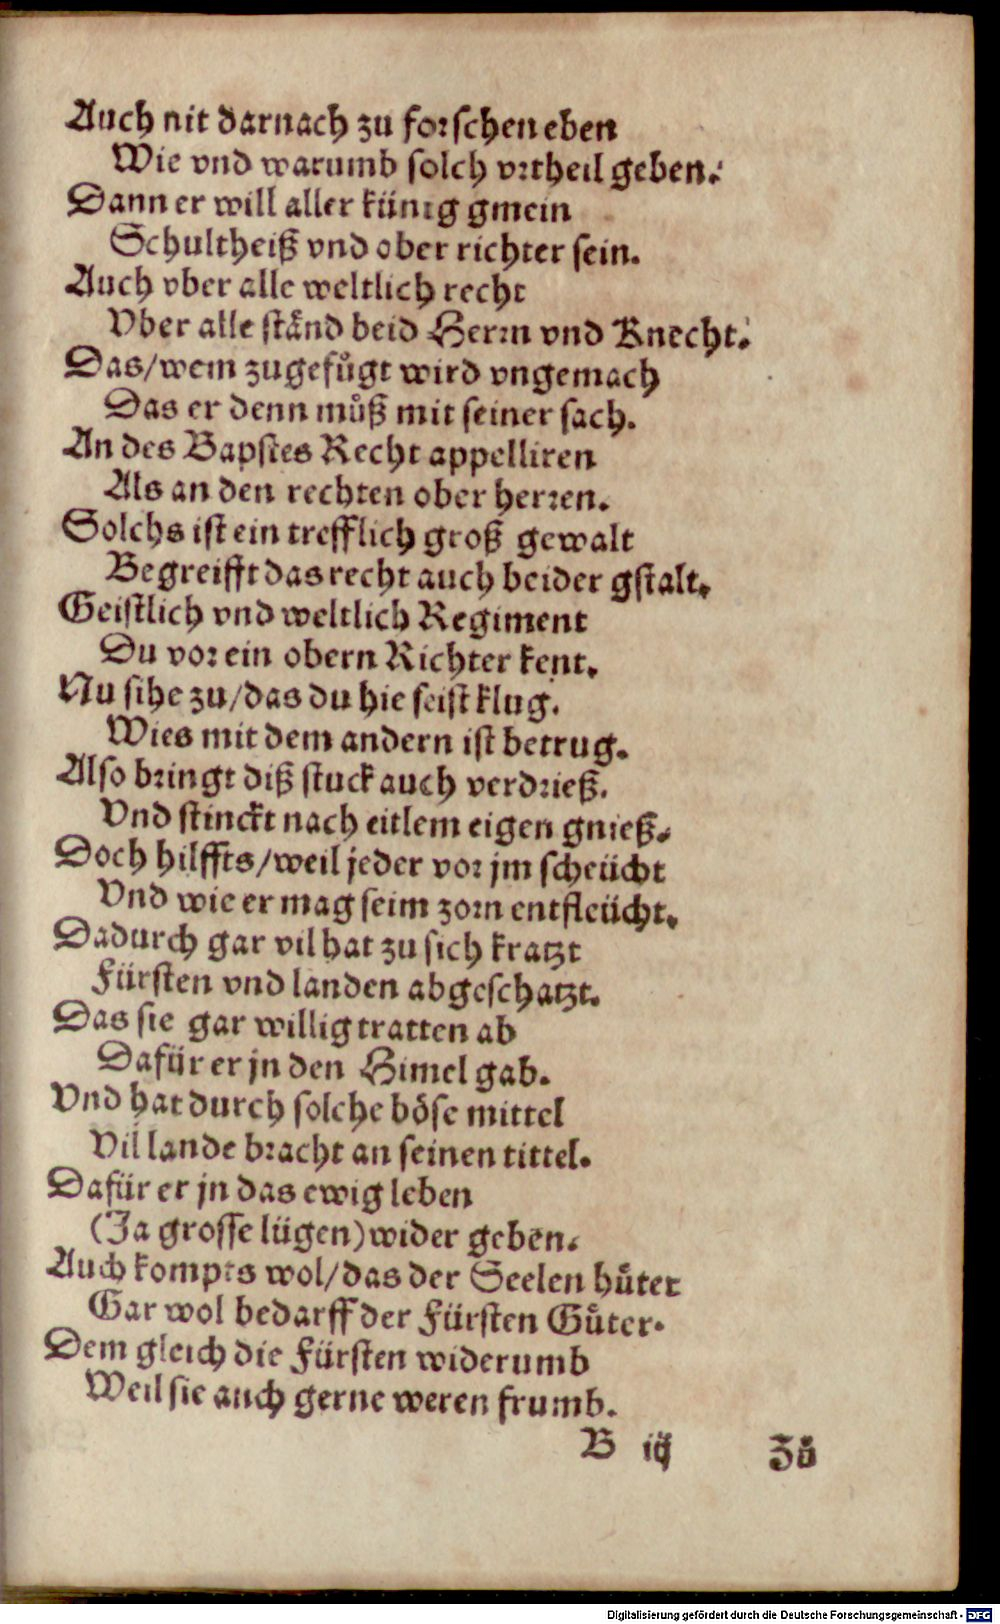 Auch nit darnach zu forschen eben
Wie vnd warumb solch vrtheil geben.
Dann er will aller künig gmein
Schultheiß vnd ober richter sein.
Auch vber alle weltlich recht
Vber alle ständ beid Herrn vnd Knecht.
Das/wem zugefůgt wird vngemach
Das er denn můß mit seiner sach.
An des Bapstes Recht appelliren
Als an den rechten ober herren.
Solchs ist ein trefflich groß gewalt
Begreifft das recht auch beider gstalt.
Geistlich vnd weltlich Regiment
Du vor ein obern Richter kent.
Nu sihe zu/das du hie seist klug.
Wies mit dem andern ist betrug.
Also bringt diß stuck auch verdrieß.
Vnd stinckt nach eitlem eigen gnieß.
Doch hilffts/weil jeder vor jm scheücht
Vnd wie er mag seim zorn entfleücht.
Dadurch gar vil hat zu sich kratzt
Fürsten vnd landen abgeschatzt.
Das sie gar willig tratten ab
Dafür er jn den Himel gab.
Vnd hat durch solche böse mittel
Vil lande bracht an seinen tittel.
Dafür er jn das ewig leben
(Ja grosse lügen) wider geben.
Auch kompts wol/das der Seelen hůter
Gar wol bedarff der Fürsten Gůter.
Dem gleich die Fürsten widerumb
Weil sie auch gerne weren frumb.
B iij Zů
Digitalisierung gefördert durch die Deutsche Forschungsgemeinschaft - DFG